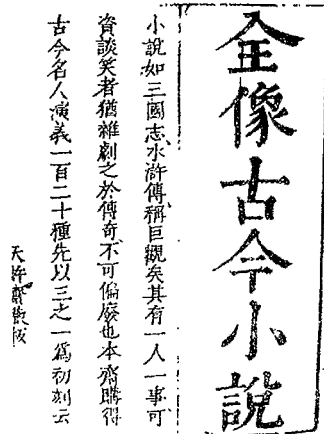 全像古今小說
小說如三國志水滸傳稱巨觀矣其有一人一事可
資談笑者猶雜劇之於傳奇不可偏廢也本齋購得
古今名人演義一百二十種先以三之一為初刻云
天許齋藏板